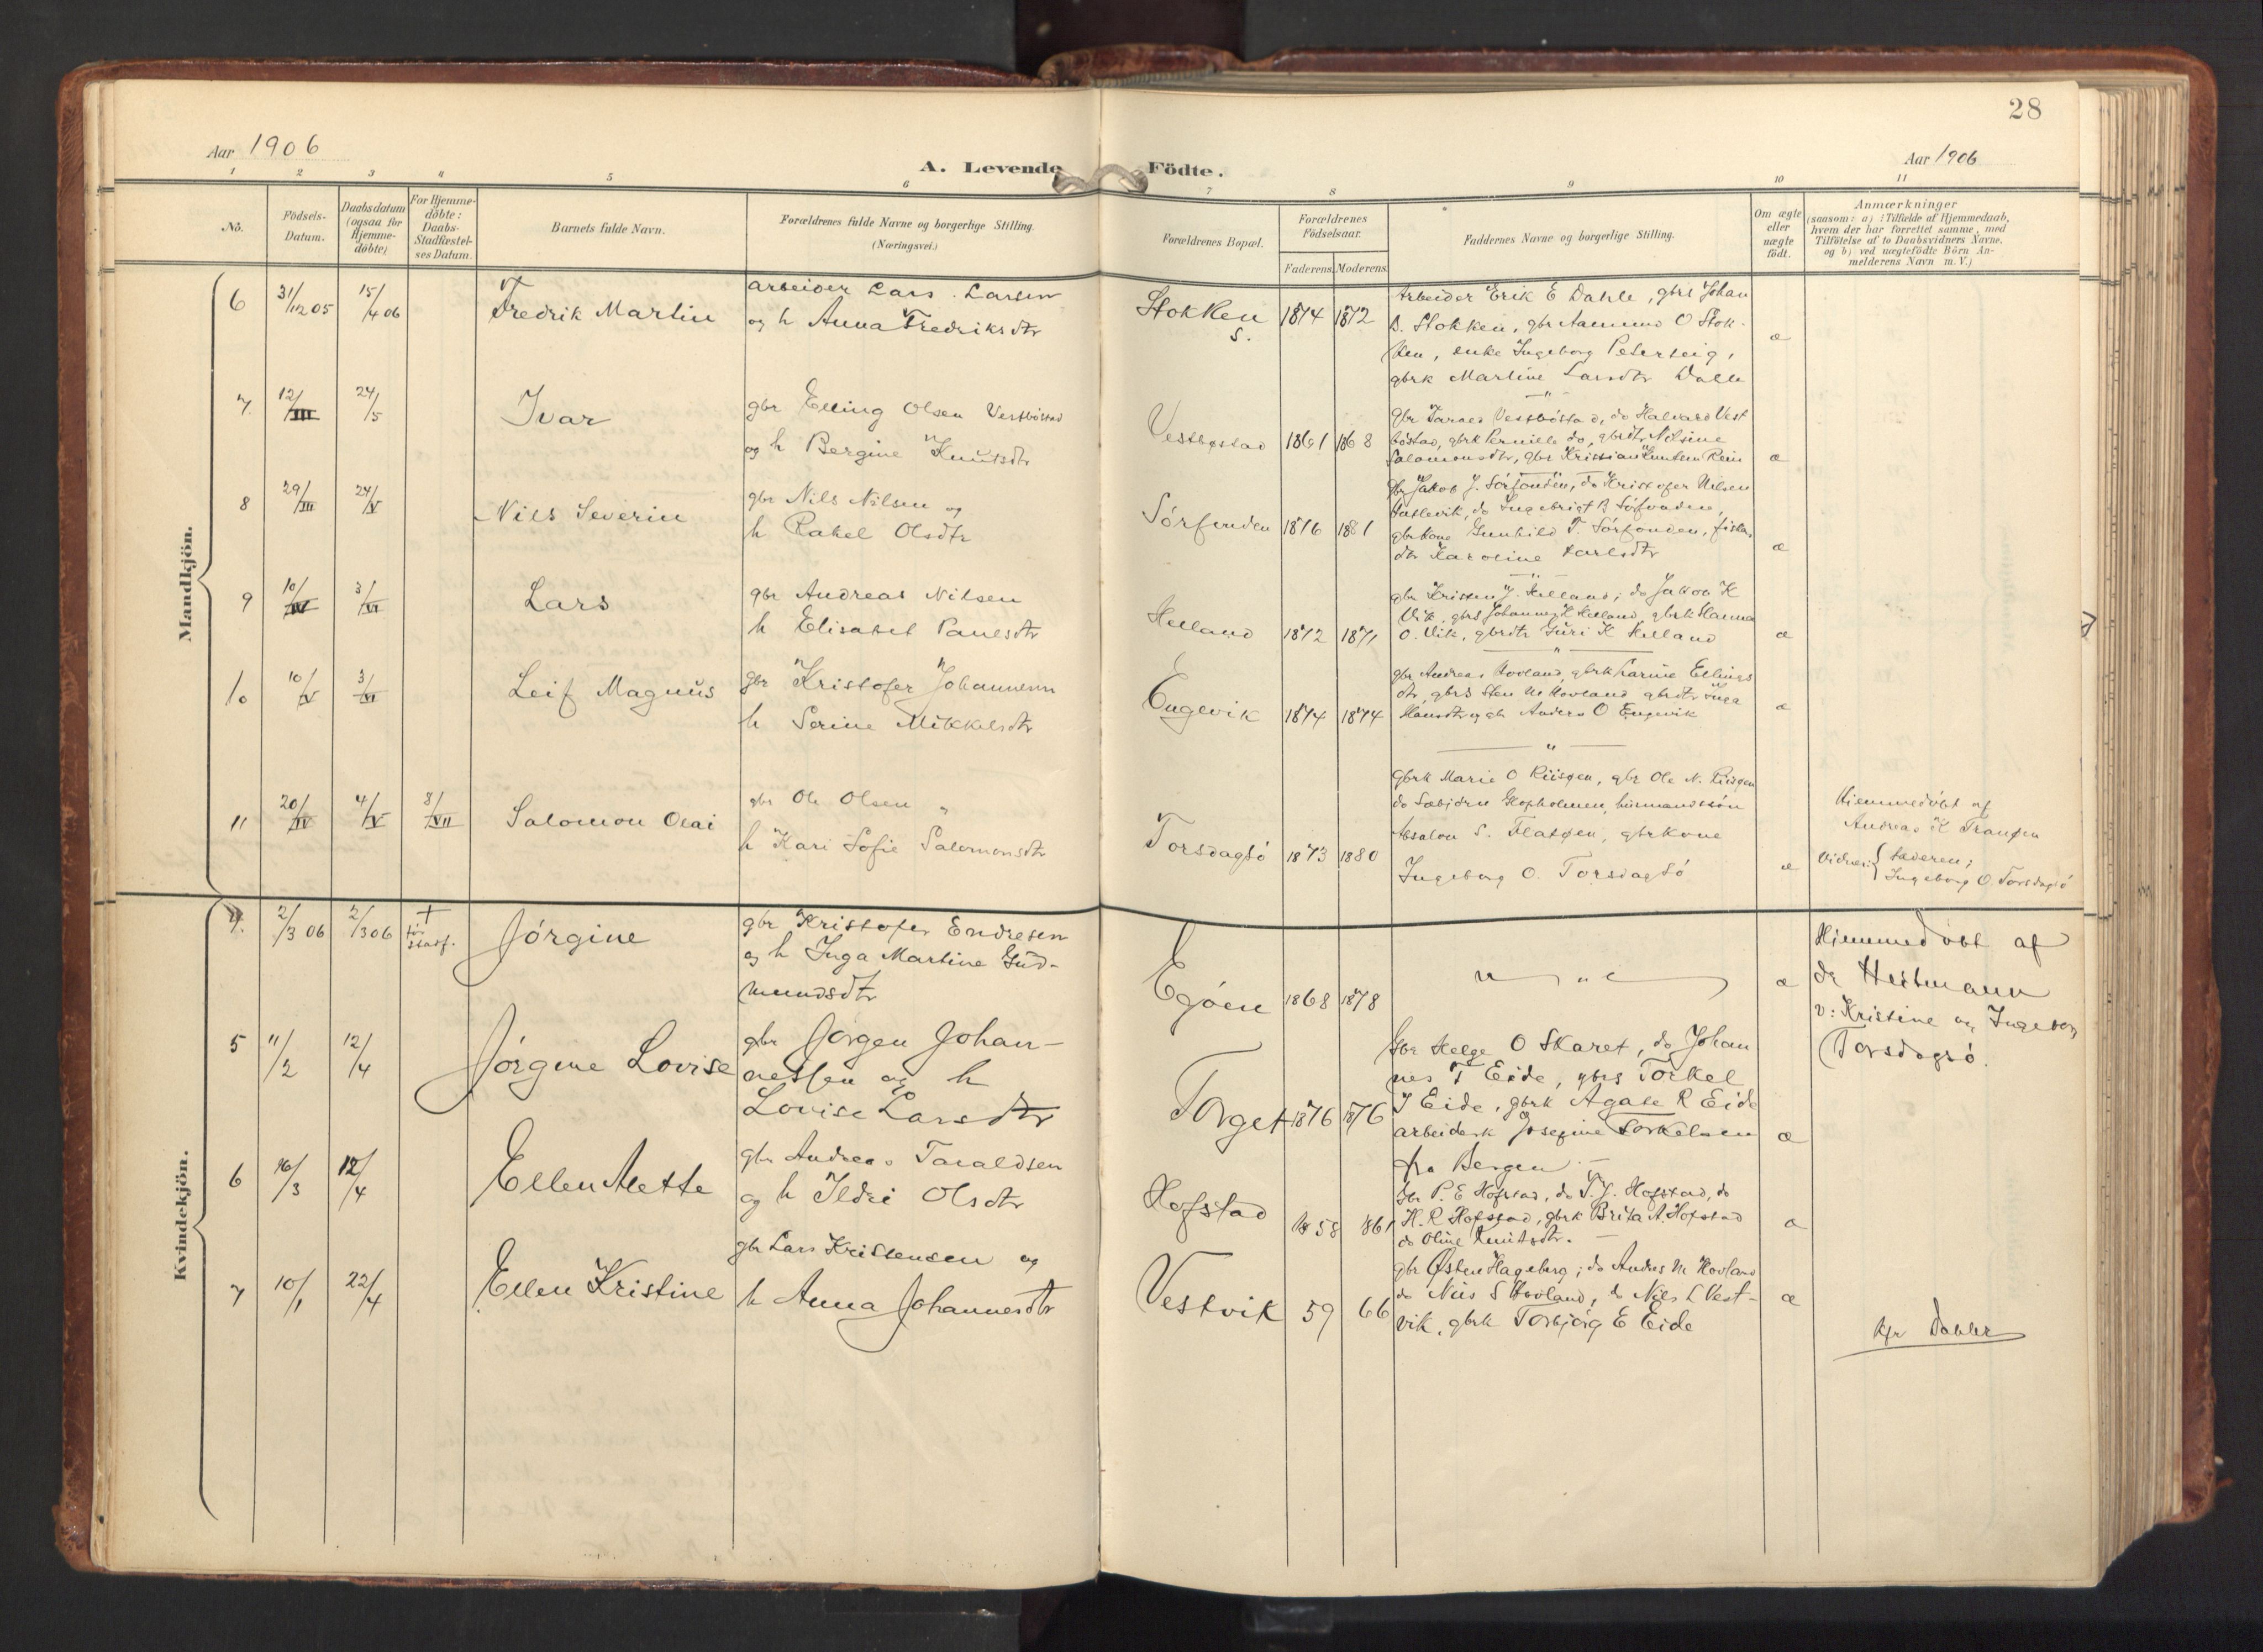 28
Aar 1906
A. Levende Födte.
Aar 1906
1 2 3 4 5 6 7 8 9 10 11
No.
Födsels-
Datum.
Daabsdatum
(ogsaa for
Hjemme-
döbte)
For Hjemme-
döbte:
Daabs-
Stadfæstel-
ses Datum.
Barnets fulde Navn.
Forældrenes fulde Navne og borgerlige Stilling.
(Næringsvei.)
Forældrenes Bopæl.
Forældrenes
Födselsaar.
Faderens. Moderens.
Faddernes Navne og borgerlige Stilling.
Om ægte
eller
uægte
födt.
Anmærkninger
(saasom: a) :Tilfælde af Hjemmedaab,
hvem der har forrettet samme, med
Tilföielse af to Daabsvidners Navne,
og b) ved uægtefödte Börn An-
melderens Navn m. V.)
Mandkjön.
6 31/12 05 15/4 06 Fredrik Martin
arbeider Lars Larsen
og h Anna Fredriksdtr
Stokken
S.
1874 1872
Arbeider Erik E Dahle, gbrs Johan
B. Stokken, gbr Aanund O Stok-
ken, enke Ingeborg Peterteig,
gbrk Martine Larsdtr Dahle
æ
7. 12/III 24/5 Ivar
gbr Elling Olsen Vestböstad
og h Bergine Knutsdtr
Vestbøstad 1861 1868
Gbr Tarald Vestböstad, do Halvard Vest
böstad, gbrk Pernille do, gbrdtr Nilsine
Salomonsdtr, gbr Kristian Knutsen Rein
æ
8 29/III 24/V Nils Severin
gbr Nils Nilsen og
h Rakel Olsdtr
Sörfonden 1876 1881
gbr Jakob J. Sörfonden, do Kristofer Nilsen
do Ingebrigt B Söfonden,
gbrkone Gunhild T. Sörfonden, fisker
dtr Karoline Karlsdtr
æ
9 10/IV 3/VI Lars
gbr Andreas Nilsen
h Elisabet Paulsdtr
Helland 1872 1871
gbr Kristen J. Helland; do Jakob K
Vik, gbrs Johannes K Helland, gbrk Hanna
O. Vik, gbrdtr Guri K Helland
æ
10 10/V 3/VI Leif Magnus
gbr Kristofer Johannesen
h Serine Mikkelsdtr
Engevik 1874 1874
gbr Andreas Hovland, gbrk Karine Ellings
dtr, gbrs Sten M Hovland gbrdtr Inga
Hansdtr og gbr Anders O Engevik
æ
11 20/IV 4/V 8/VII Salomon Olai
gbr Ole Olsen
h Kari Sofie Salomonsdtr
Torsdagsö 1873 1880
gbrk Marie O Riisøen, gbr Ole N. Riisøen
do Sæbjörn Glopholmen, husmandssön
Absalon S. Flatøen, gbrkone
Ingeborg O. Torsdagsö
æ
Hiemmedöbt af
Andreas K Tranøen
Vidner: faderen;
Ingeborg O. Torsdagsö
Kvindekjön.
4. 2/3 06 2/3 06 † før stadf. Jörgine
gbr Kristofer Endresen
og h Inga Martine Gud-
mundsdtr
Egöen 1868 1878
æ
Hiemmedöbt af
dr Heitmann
v: Kristine og Ingeborg
Torsdagsö.
5 11/2 12/4 Jörgine Lovise
gbr Jörgen Johan-
nessen og h
Lovise Larsdtr
Torget 1876 1876
Gbr Helge O Skaret, do Johan
nes T Eide, gbrs Torkel
J Eide, gbrk Agate R Eide
arbeiderk Josefine Torkelsen
fra Bergen
æ
6 16/3 12/4 Ellen Mette
gbr Andreas Taraldsen
og h Ildri Olsdtr
Hofstad 1858 861
Gbr P. E Hofstad, do T. J. Hofstad, do
H. R Hofstad, gbrk Brita A. Hofstad
do Oline Knutsdtr.
æ
7 10/1 22/4 Ellen Kristine
gbr Lars Kristensen og
h Anna Johannesdtr
Vestvik 59 66
gbr Østen Hageberg; do Andrs M Hovland
do Nils S Hovland, do Nils L Vest-
vik, gbrk Torbjörg E Eide
æ
Kfr Döbler